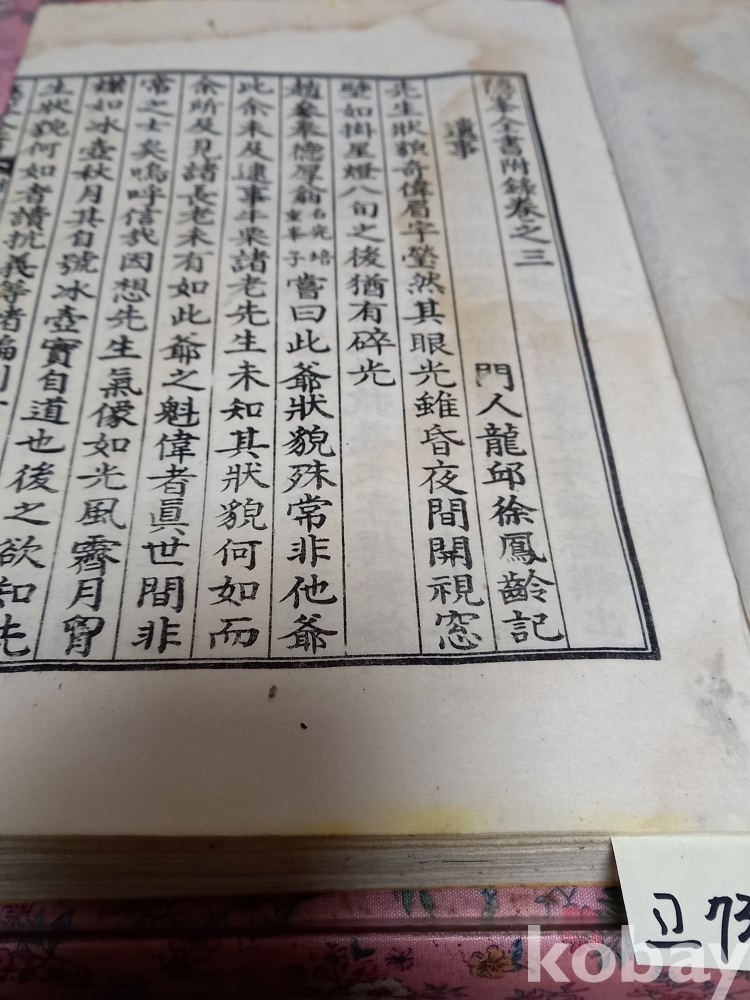 隱峯全書附錄卷之三
遺事
門人龍邱徐鳳齡記
先生狀貌奇偉眉宇瑩然其眼光雖昏夜間開視窓
壁如掛星燈八旬之後猶有碎光
趙參奉德厚翁名光培重峯子嘗曰此爺狀貌殊常非他爺
此余未及逮事牛栗諸老先生未知其狀貌何如而
余所及見諸長老未有如此爺之魁偉者眞世間非
常之士矣嗚呼信哉因想先生氣像如光風霽月胷
襟如冰壺秋月其自號冰壺實自道也後之欲知先
生狀貌何如者讀抗義等諸編則
고 73
kobay